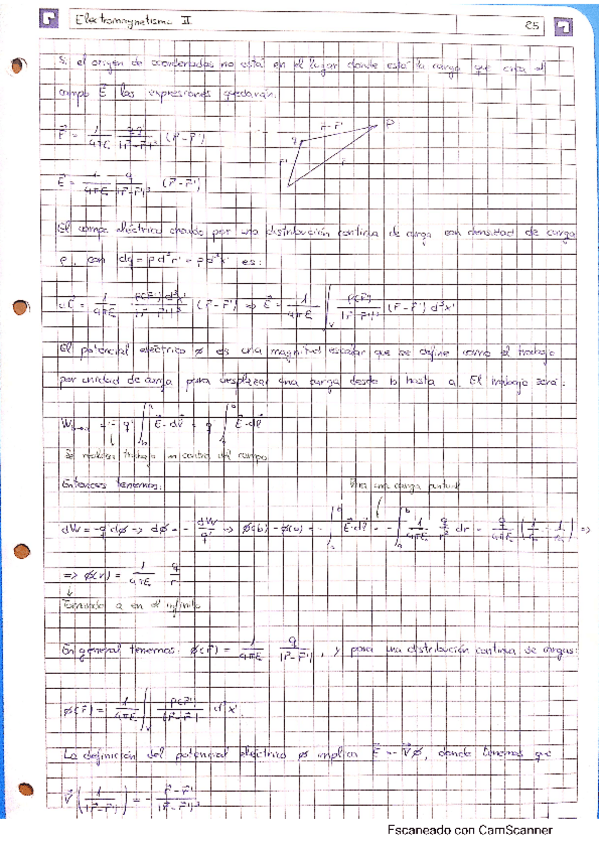 Electromagnetismo II
25
Si el origen de coordenadas no está en el lugar donde está la carga que crea el
campo E⃗ las expresiones quedarán:
F⃗ = 1/4πε qq'/|r⃗-r⃗'|³ (r⃗-r⃗')
r⃗-r⃗' P
q
r⃗' r⃗
E⃗ = 1/4πε q/|r⃗-r⃗'|³ (r⃗-r⃗')
El campo eléctrico creado por una distribución continua de carga con densidad de carga
ρ, con dq = ρ d³r' = ρ d³x' es:
dE⃗ = 1/4πε ρ(r⃗')d³x'/|r⃗-r⃗'|³ (r⃗-r⃗') ⇒ E⃗ = 1/4πε ∫ᵥ ρ(r⃗')/|r⃗-r⃗'|³ (r⃗-r⃗') d³x'
El potencial eléctrico ø es una magnitud escalar que se define como el trabajo
por unidad de carga para desplazar una carga desde b hasta a. El trabajo será:
∫ E⃗·dl⃗ = q ∫ E⃗·dl⃗
Se realiza trabajo en contra del campo
Entonces tenemos:
Para una carga puntual
dW = -q dø → dø = - dW/q ⇒ ø(b) - ø(a) = - ∫ₐᵇ E⃗·dl⃗ = - ∫ₐᵇ 1/4πε q/r² dr = q/4πε ⇒
⇒ ø(r) = 1/4πε q/r
Tomando a en el infinito
En general tenemos: ø(r⃗) = 1/4πε q/|r⃗-r⃗'|, y para una distribución continua de cargas:
ø(r⃗) = 1/4πε ∫ᵥ ρ(r⃗')/|r⃗-r⃗'| d³x'
La definición del potencial eléctrico ø implica E⃗ = -∇⃗ø, donde tenemos que
∇⃗(1/|r⃗-r⃗'|) = - r⃗-r⃗'/|r⃗-r⃗'|³
Escaneado con CamScanner